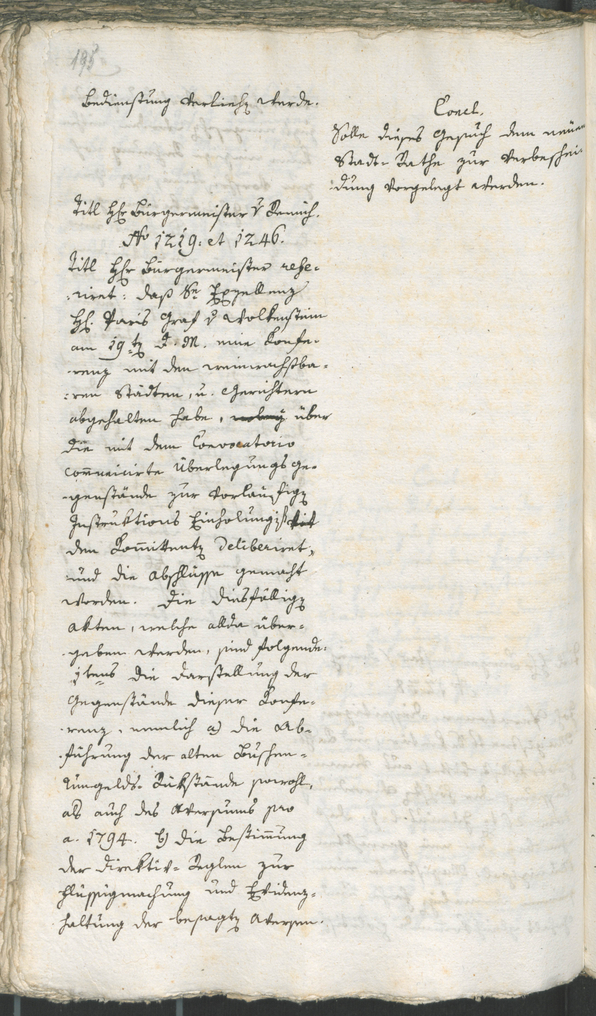 195
Bedienstung verliehen werde.
Concl.
Solle dieses Gesuch dem neuen
Stadt-Rathe zur Verbeschei-
dung vorgelegt werden.
Titl H: Bürgermeister v
No 1219. et 1246.
Titl H: Bürgermeister refe-
riret: daß Se Exzellenz
H: Paris Graf v Wolkenstein
am 19ten d. M. eine Konfe-
renz mit den weinwachsba-
ren Städten, u. Gerichtern
abgehalten habe, über
die mit dem Convocatorio
com̄unicirte Überlegungs Ge-
genstände zur vorläufigen
Instruktions Einholung
den Kom̄ittenten deliberiret,
und die Abschlüsse gemacht
worden. Die diesfälligen
Akten, welche allda über-
geben werden, sind folgende:
1tens die Darstellung der
Gegenstände dieser Konfe-
renz, nemlich a) die Ab-
führung der alten Buschen-
Umgelds-Rükstände sowohl,
als auch des Aversums pro
a. 1794. b) die Bestim̄ung
der Direktiv-Reglen zur
Flüssigmachung und Evidenz-
haltung der besagten Aversen-